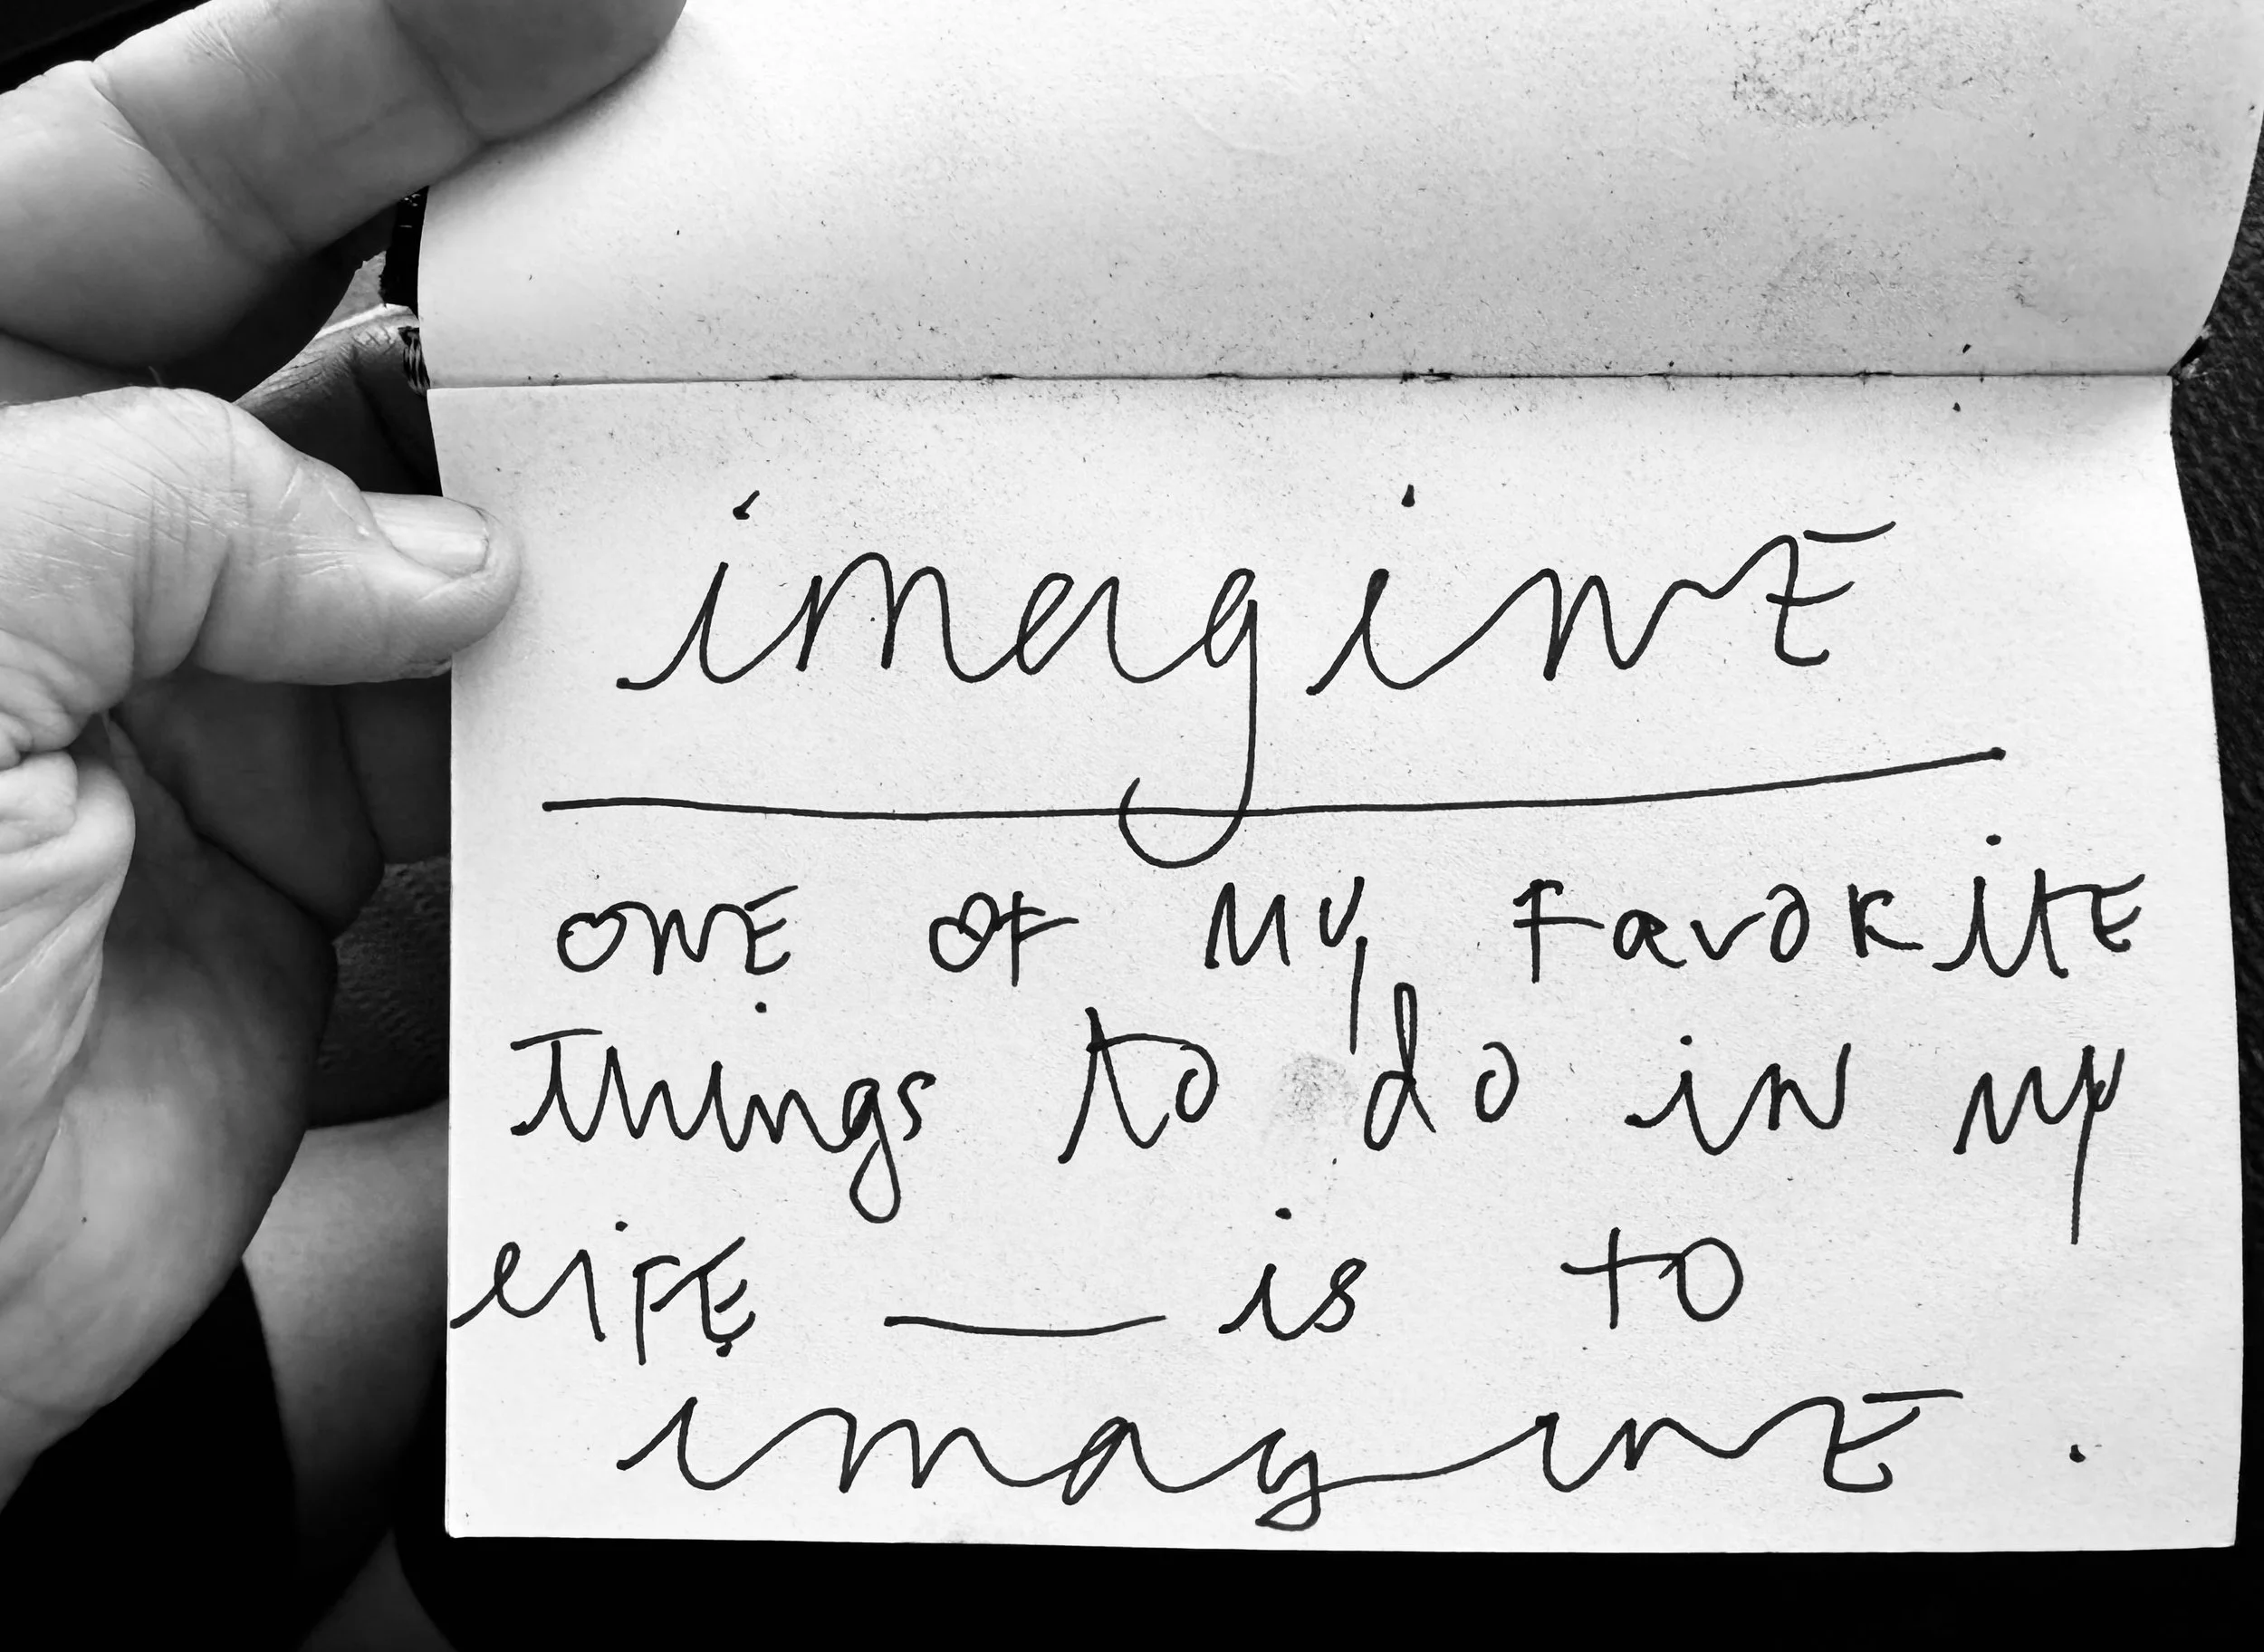 imaginE
ONE OF MY FavoRitE
Things to do in my
LiFE — is to
imaginE.